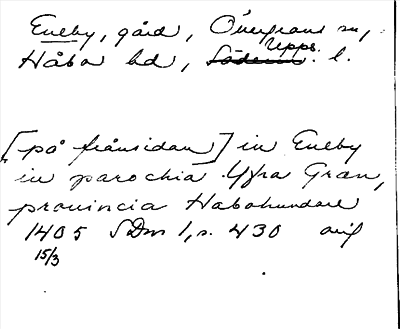 Eneby, gård, Övergrans sn,
Håbo hd, Upps. l.
[på frånsidan] in Eneby
in parochia Yfra Gran,
provincia Habohundare
1405 SDns 1, s. 430 avif
15/3